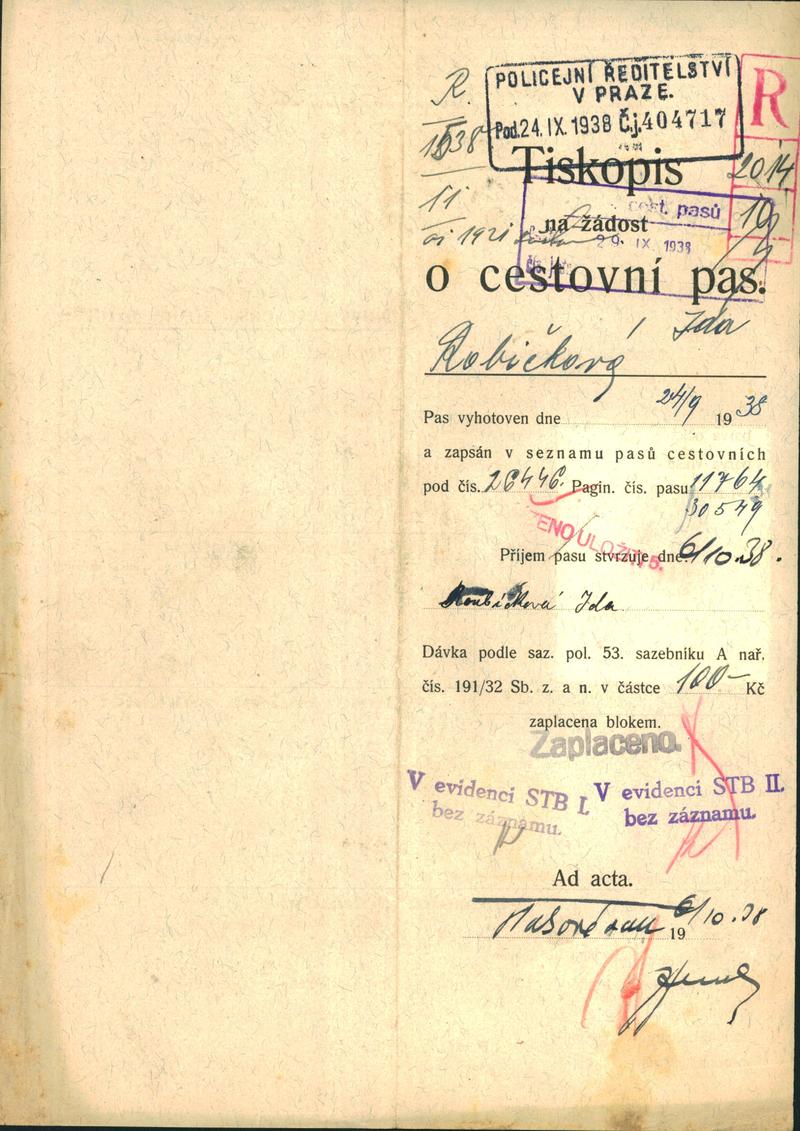 R.
1538
11
POLICEJNÍ ŘEDITELSTVÍ
V PRAZE.
Pod. 24. IX. 1938 Č.j. 404717
R
2014
10
Tiskopis
cest. pasů
na žádost
29. IX. 1938
o cestovní pas.
Robíčková Ida
Pas vyhotoven dne 24/9 1938
a zapsán v seznamu pasů cestovních
pod čís. 26446. Pagin. čís. pasu 11764
30549
ENO ULOŽIT 5.
Příjem pasu stvrzuje dne: 6/10.38.
Roubíčková Ida
Dávka podle saz. pol. 53. sazebníku A nař.
čís. 191/32 Sb. z. a n. v částce 100- Kč
zaplacena blokem.
Zaplaceno.
V evidenci STB I.
bez záznamu.
V evidenci STB II.
bez záznamu.
Ad acta.
6/10.38
19